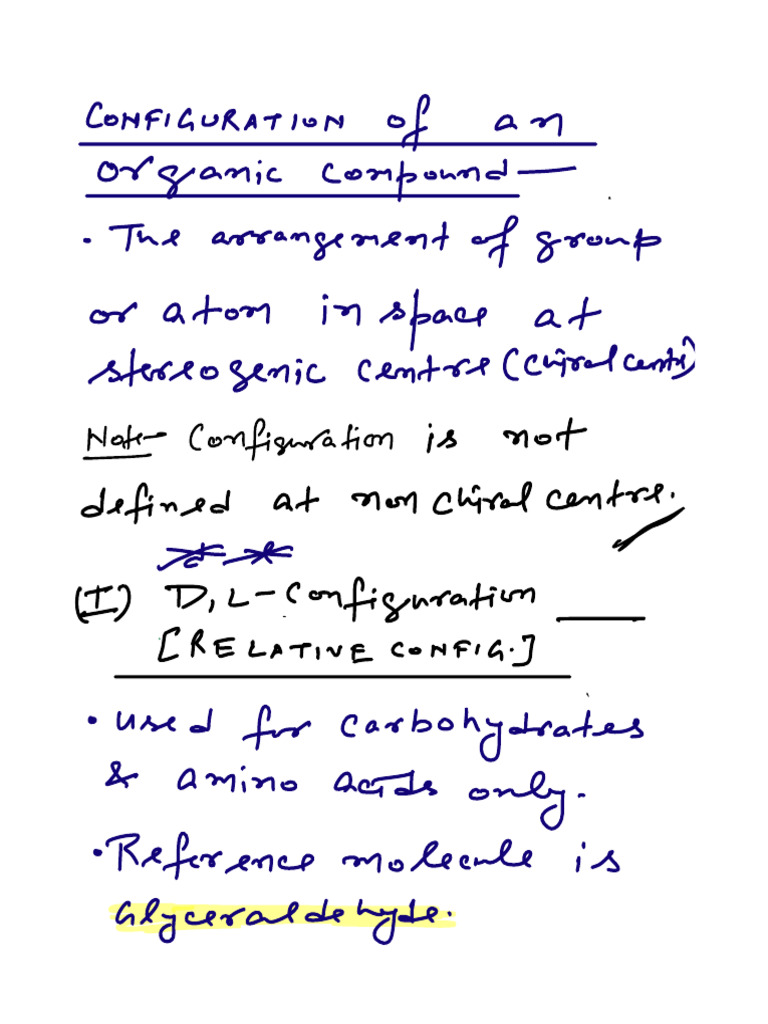 CONFIGURATION of an
organic compound—
• The arrangement of group
or atom in space at
stereogenic centre (chiral centre)
Note- Configuration is not
defined at non chiral centre.
(I) D, L-Configuration
[RELATIVE CONFIG.]
• used for carbohydrates
& amino acids only.
• Reference molecule is
Glyceraldehyde.